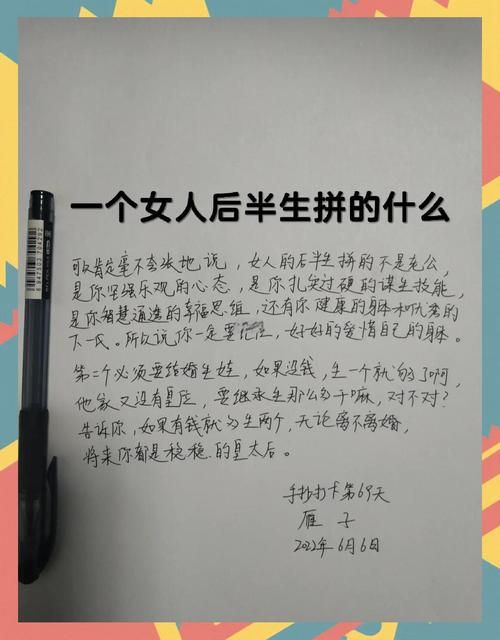 一个女人后半生拼的什么
可以肯定毫不夸张地说，女人的后半生拼的不是老公，
是你坚强乐观的心态，是你扎实过硬的谋生技能，
是你智慧通透的幸福思维，还有你健康的身体和优秀的
下一代。所以说你一定要记住，好好的爱惜自己的身体。
第二个必须要结婚生娃，如果没钱，生一个就够了啊，
他家又没有皇位，要继承生那么多干嘛，对不对？
告诉你，如果有钱就多生两个，无论离不离婚，
将来你都是稳稳的皇太后。
手抄打卡第69天
雁子
2022年6月6日